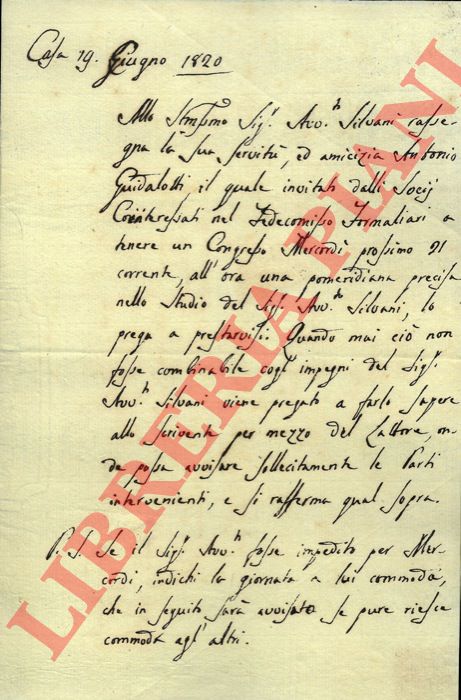 Casa 19. Giugno 1820
Allo Stmssmo Sigr. Avvto Silvani rasse-
gna la sua servitù, ed amicizia Antonio
Guidalotti il quale invitati dalli Socij
Cointeressati nel Fedecomisso Formaliari a
tenere un Congresso Mercordì prossimo 21
corrente, all'ora una pomeridiana precisa
nello Studio del Sigr. Avvto Silvani, lo
prega a prestarvisi. Quando mai ciò non
fosse combinabile cogl'impegni del Sigr.
Avvto Silvani viene pregato a farlo sapere
allo scrivente per mezzo del Lattore, on-
de possa avvisare sollecitamente le Parti
intervenienti, e si rafferma qual sopra.
P.S. Se il Sigr. Avvto fosse impedito per Mer-
cordì, indichi la giornata a lui commoda,
che in seguito sarà avvisato se pure riesce
commoda agl'altri.
LIBRERIA PIANI